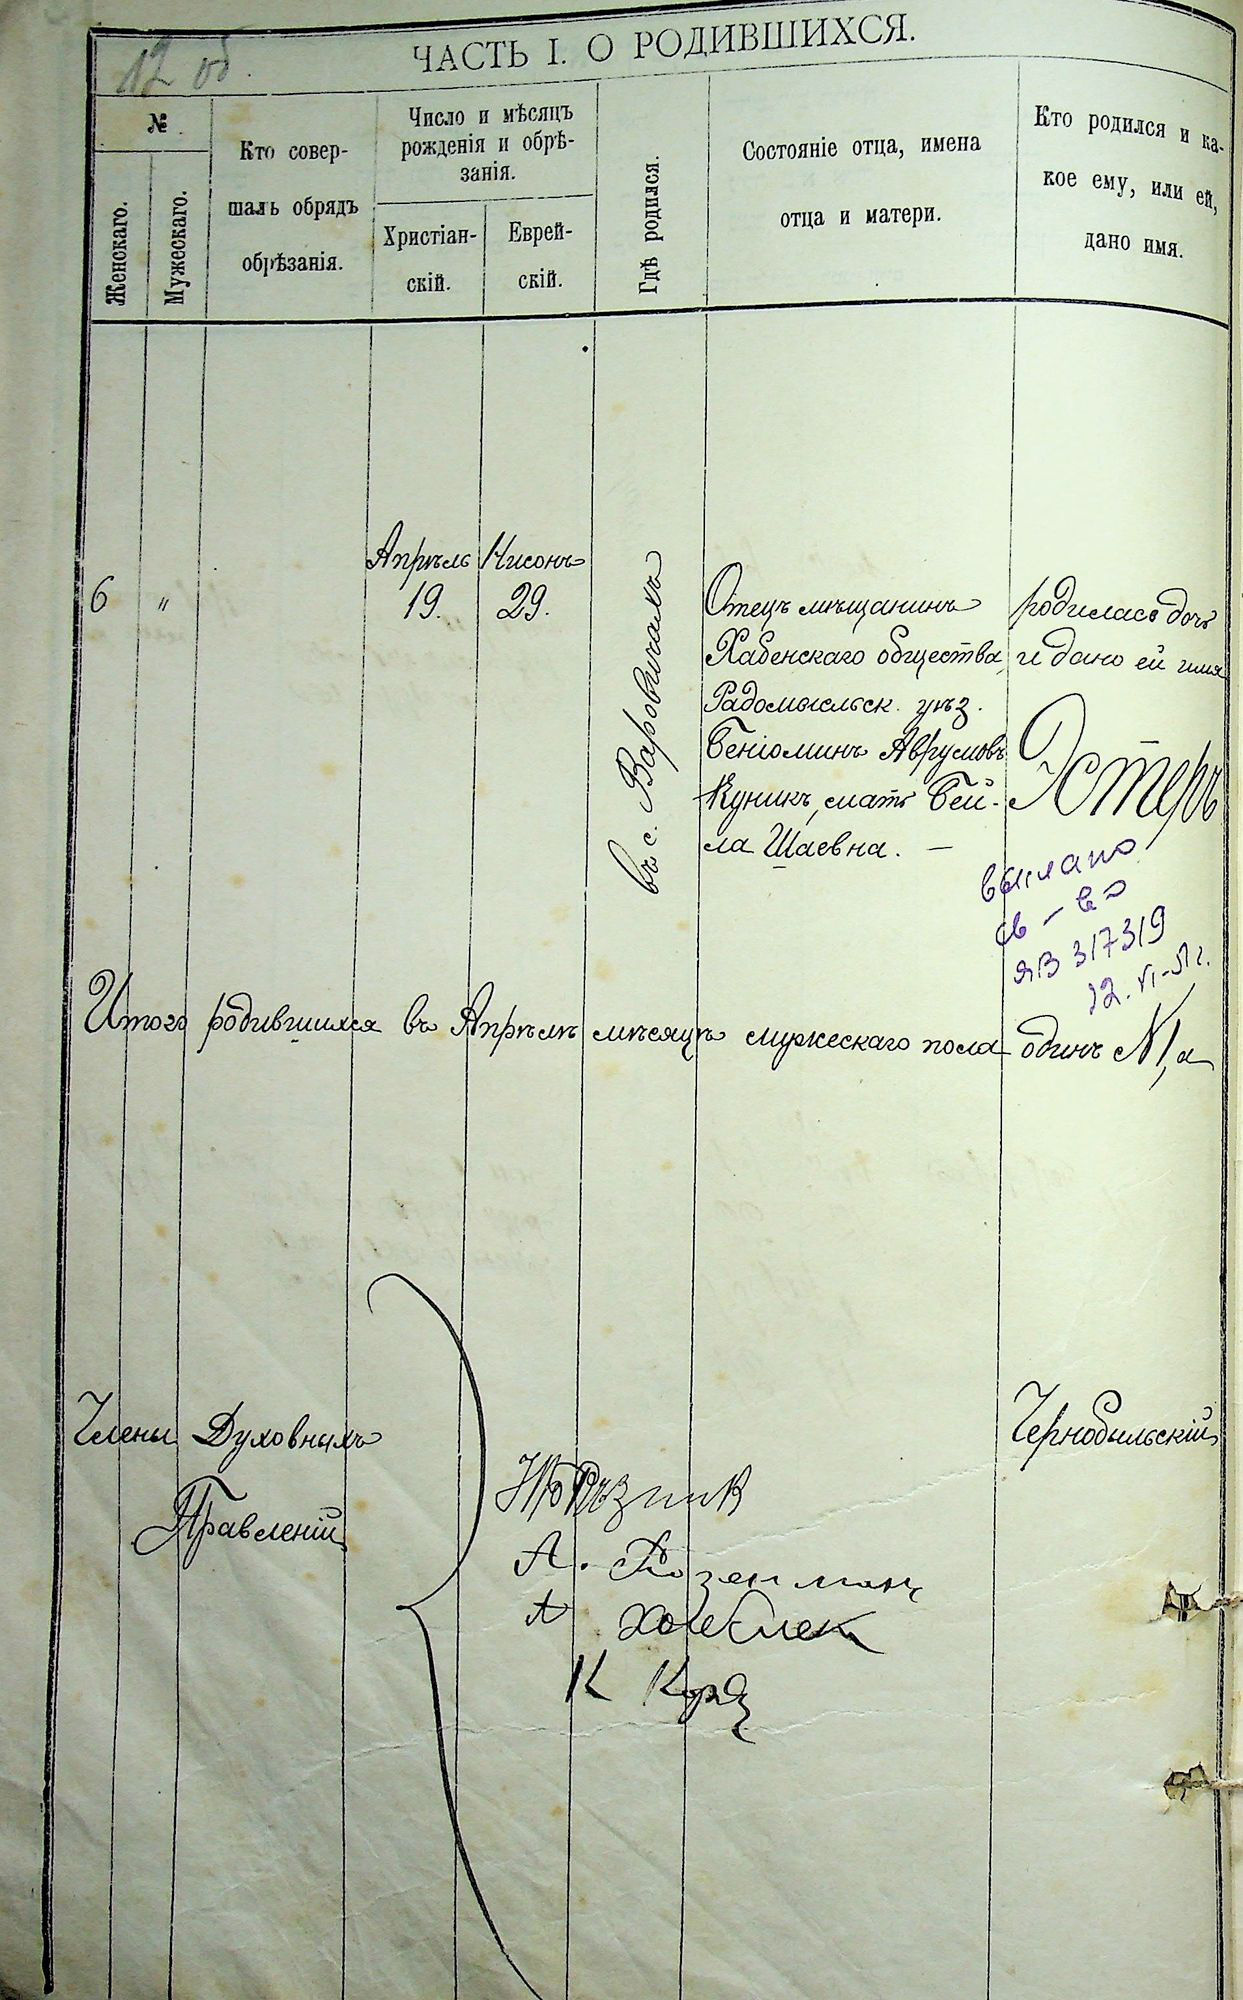 12 об.
ЧАСТЬ I. О РОДИВШИХСЯ.
№
Женскаго.
Мужескаго.
Кто совер-
шалъ обрядъ
обрѣзанія.
Число и мѣсяцъ
рожденія и обрѣ-
занія.
Христіан-
скій.
Еврей-
скій.
Гдѣ родился.
Состояніе отца, имена
отца и матери.
Кто родился и ка-
кое ему, или ей,
дано имя.
6
"
Апрѣль
19.
Нисонъ
29.
въ с. Варовичахъ
Отецъ мѣщанинъ
Хабенскаго общества
Радомысльск. уѣз.
Беніоминъ Аврумовъ
Куникъ, мать Бей-
ла Шаевна. —
родилась дочь
и дано ей имя
Эстеръ
выслано
св-во
ЯВ 317319
12.VI-51г.
Итого родившихся въ Апрѣлѣ мѣсяцѣ мужескаго пола одинъ №1, а
Члены Духовныхъ
Правленій
Чернобыльскій
Рѣзник
А. Розенман
А
К Корд